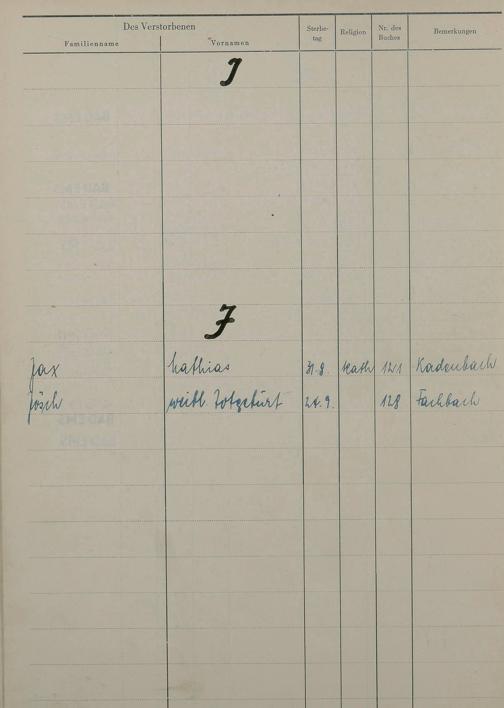 Des Verstorbenen
Familienname Vornamen Sterbe-
tag Religion Nr. des
Buches Bemerkungen
I
J
Jax Mathias 31.8. Kath 121 Kadenbach
Jösch weibl. Totgeburt 21.9. 128 Fachbach
BAD EMS
BAD EMS
BAD EMS
BAD EMS